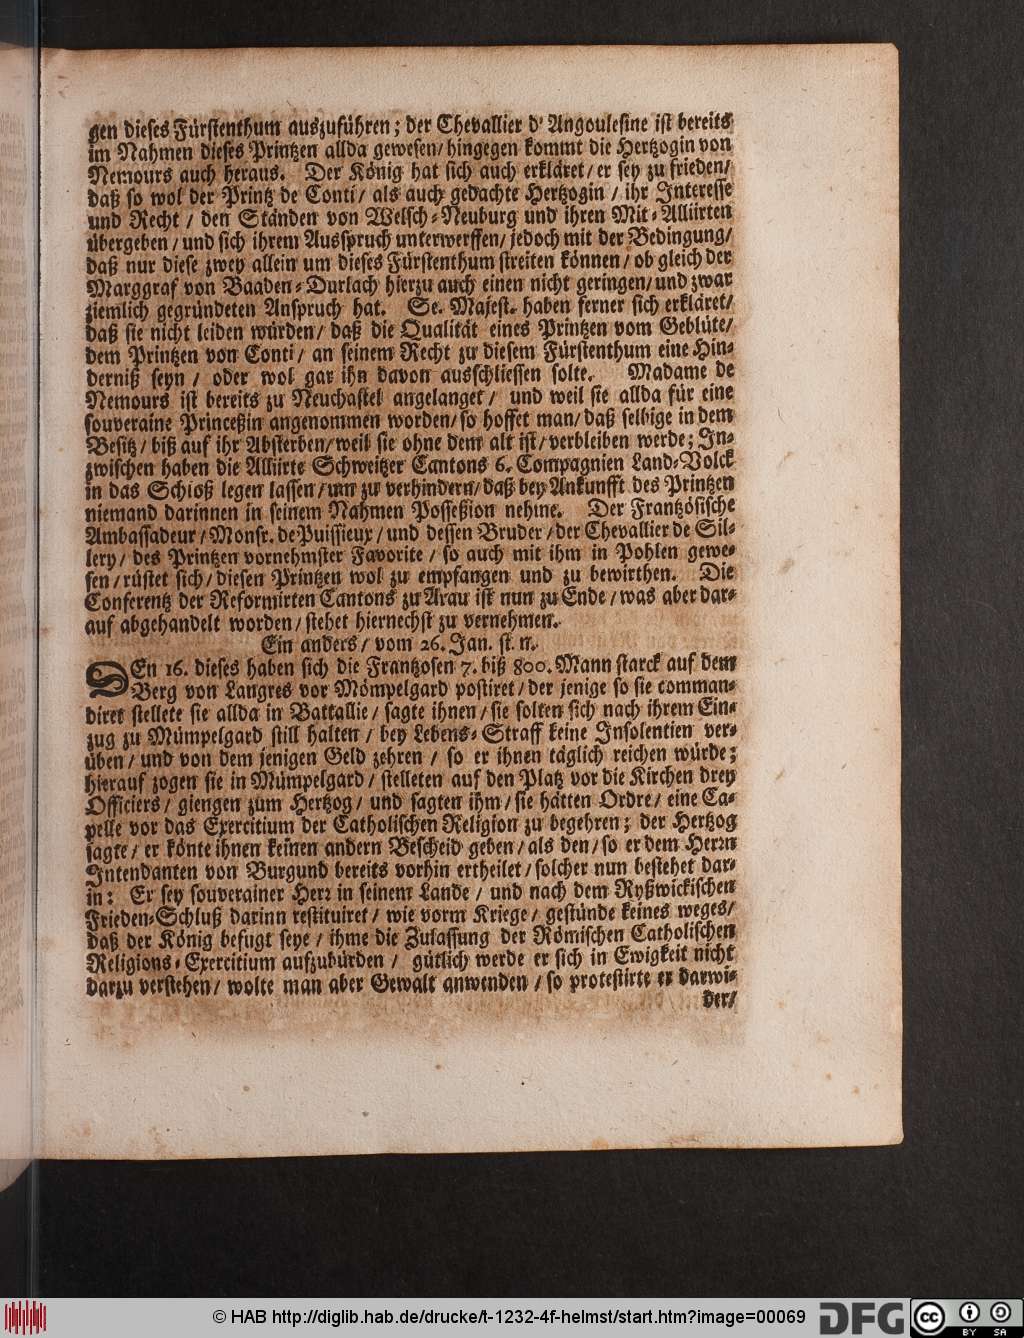 gen dieses Fürstenthum auszuführen; der Chevallier d' Angoulesine ist bereits
im Nahmen dieses Printzen allda gewesen/ hingegen kommt die Hertzogin von
Nemours auch heraus. Der König hat sich auch erkläret/ er sey zu frieden/
daß so wol der Printz de Conti/ als auch gedachte Hertzogin/ ihr Interesse
und Recht/ den Ständen von Welsch-Neuburg und ihren Mit-Alliirten
übergeben/ und sich ihrem Ausspruch unterwerffen/ jedoch mit der Bedingung/
daß nur diese zwey allein um dieses Fürstenthum streiten können/ ob gleich der
Marggraf von Baaden-Durlach hierzu auch einen nicht geringen/ und zwar
ziemlich gegründeten Anspruch hat. Se. Majest. haben ferner sich erkläret/
daß sie nicht leiden würden/ daß die Qualität eines Printzen vom Geblüte/
dem Printzen von Conti/ an seinem Recht zu diesem Fürstenthum eine Hin-
derniß seyn/ oder wol gar ihn davon ausschliessen solte. Madame de
Nemours ist bereits zu Neuchastel angelanget/ und weil sie allda für eine
souveraine Princeßin angenommen worden/ so hoffet man/ daß selbige in dem
Besitz/ biß auf ihr Absterben/ weil sie ohne dem alt ist/ verbleiben werde; In-
zwischen haben die Alliirte Schweitzer Cantons 6. Compagnien Land-Volck
in das Schloß legen lassen/ um zu verhindern/ daß bey Ankunfft des Printzen
niemand darinnen in seinem Nahmen Posseßion nehme. Der Frantzösische
Ambassadeur/ Monsr. de Puissieux/ und dessen Bruder/ der Chevallier de Sil-
lery/ des Printzen vornehmster Favorite/ so auch mit ihm in Pohlen gewe-
sen/ rüstet sich/ diesen Printzen wol zu empfangen und zu bewirthen. Die
Conferentz der Reformirten Cantons zu Arau ist nun zu Ende/ was aber dar-
auf abgehandelt worden/ stehet hiernechst zu vernehmen.
Ein anders/ vom 26. Jan. st. n.
DEn 16. dieses haben sich die Frantzosen 7. biß 800. Mann starck auf dem
Berg von Langres vor Mömpelgard postiret/ der jenige so sie comman-
diret stellete sie allda in Battallie/ sagte ihnen/ sie solten sich nach ihrem Ein-
zug zu Mümpelgard still halten/ bey Lebens-Straff keine Insolentien ver-
üben/ und von dem jenigen Geld zehren/ so er ihnen täglich reichen würde;
hierauf zogen sie in Mümpelgard/ stelleten auf den Platz vor die Kirchen drey
Officiers/ giengen zum Hertzog/ und sagten ihm/ sie hätten Ordre/ eine Ca-
pelle vor das Exercitium der Catholischen Religion zu begehren; der Hertzog
sagte/ er könte ihnen keinen andern Bescheid geben/ als den/ so er dem Herrn
Intendanten von Burgund bereits vorhin ertheilet/ solcher nun bestehet dar-
in: Er sey souverainer Herr in seinem Lande/ und nach dem Ryßwickischen
Frieden-Schluß darinn restituiret/ wie vorm Kriege/ gestünde keines weges/
daß der König befugt seye/ ihme die Zulassung der Römischen Catholischen
Religions-Exercitium aufzubürden/ gütlich werde er sich in Ewigkeit nicht
darzu verstehen/ wolte man aber Gewalt anwenden/ so protestirte er darwi-
der/
© HAB http://diglib.hab.de/drucke/t-1232-4f-helmst/start.htm?image=00069
DFG
cc BY SA